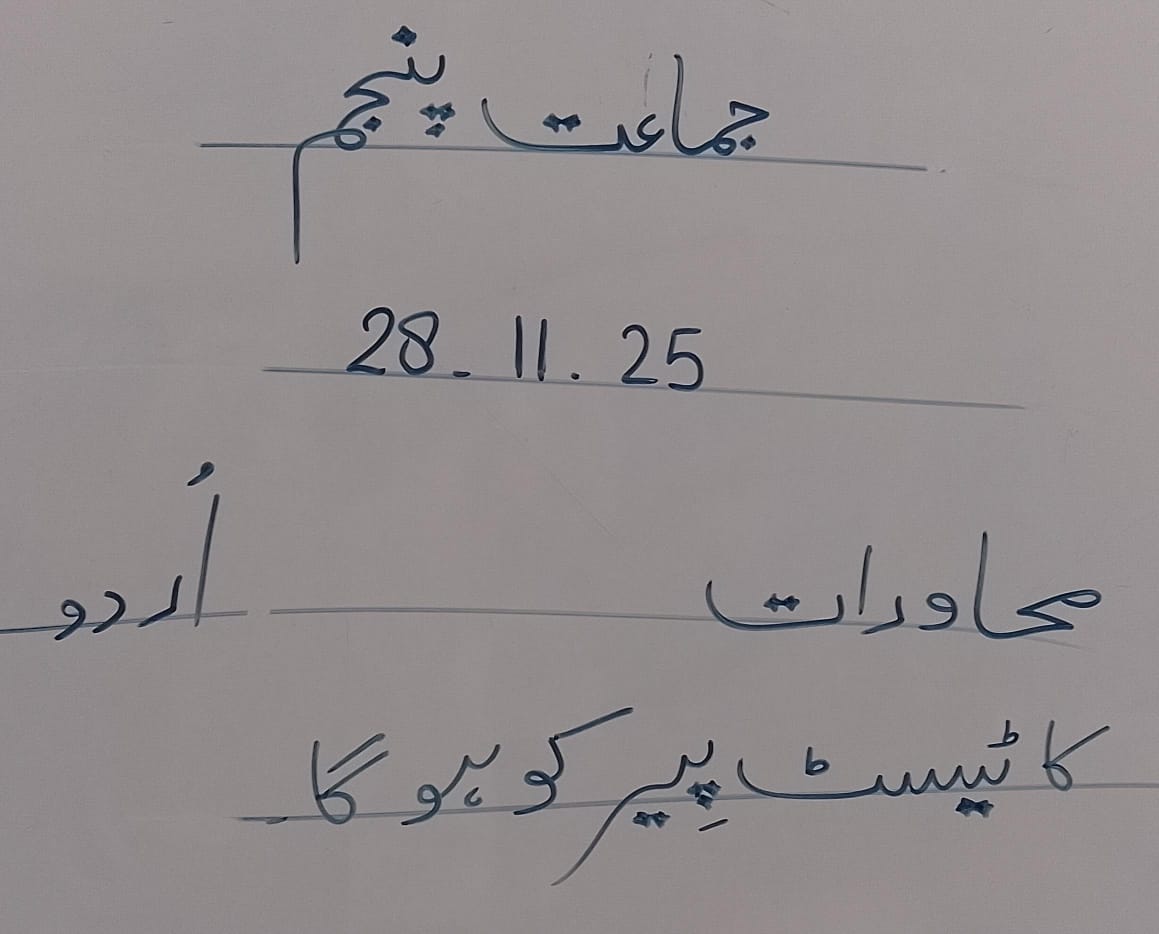 جماعت پنجم
28.11.25
محاورات اُردو
کا ٹیسٹ پِیر کو ہو گا.